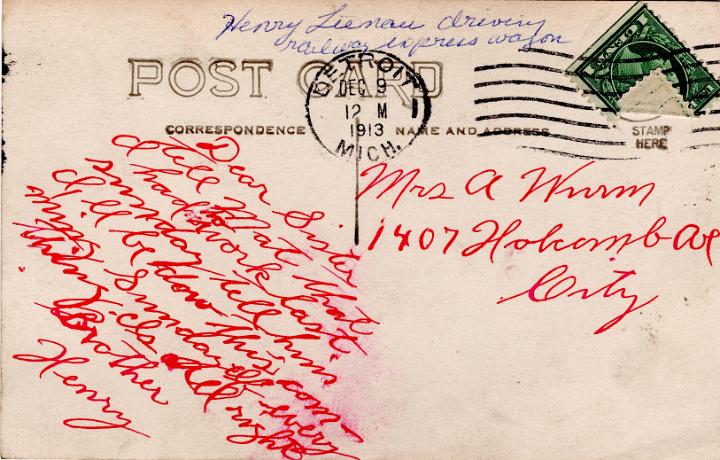 Henry Lienau driving
railway express wagon
POST CARD
DETROIT
DEC 9
12 M
1913
MICH.
CORRESPONDENCE
NAME AND ADDRESS
STAMP
HERE
Dear Sister
tell Mat that
had work last
sunday tell him
I'll be down this com-
ming Sunday if every
thing is All right
Brother
Henry
Mrs A Wurm
1407 Holcomb Ave
City